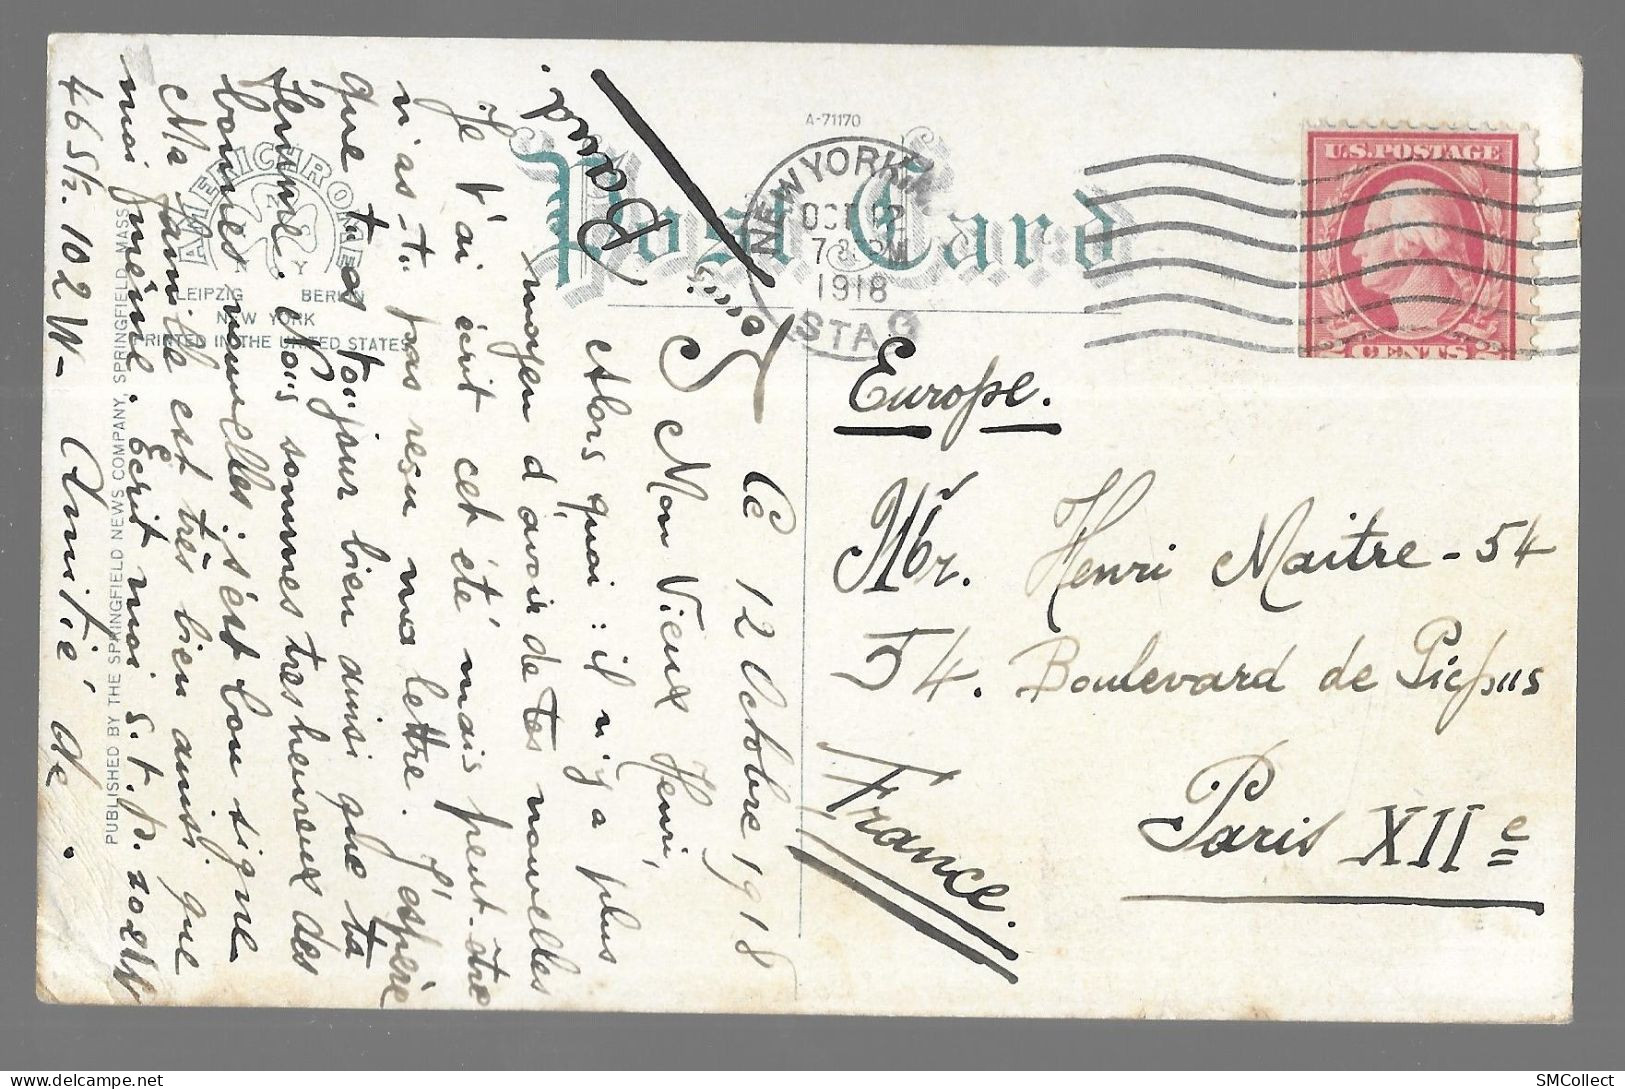 A-71170
Post Card
NEW YORK, N.Y.
OCT 12
7 PM
1918
STA
U.S. POSTAGE
2 CENTS 2
AMERICHROME
N Y
LEIPZIG BERLIN
NEW YORK
PRINTED IN THE UNITED STATES
PUBLISHED BY THE SPRINGFIELD NEWS COMPANY, SPRINGFIELD, MASS.
Europe.
Mr. Henri Maitre - 54
54. Boulevard de Picpus
Paris XIIe
France.
Ce 12 Octobre 1918
Mon Vieux Henri,
Alors quoi : il n'y a plus
moyen d'avoir de tes nouvelles
Je t'ai écrit cet été mais peut-être
n'as-tu pas reçu ma lettre. J'espère
que tu es toujour bien ainsi que ta
femme. Nous sommes tres heureux des
bonnes nouvelles; s'est bon signe
Ma famille est très bien ainsi que
moi même. Écrit moi s.t.p. 202 W
46 St. 102 W - Amitié de.
Louis
Baud.
SMCollect